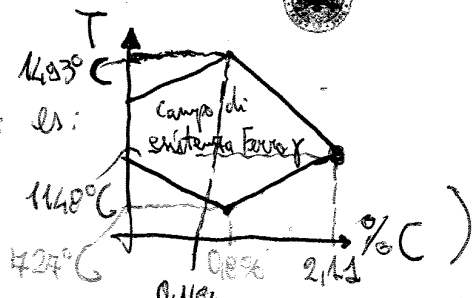 T
1493°C
es:
campo di
esistenza Ferro γ
1148°C
727°C
0,8%
2,11
% C )